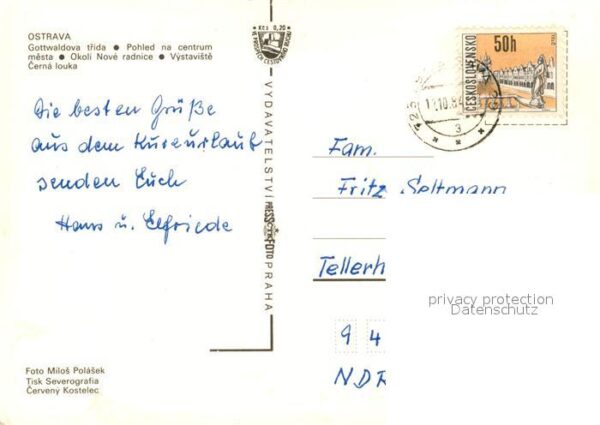 OSTRAVA
Gottwaldova třída ● Pohled na centrum
města ● Okolí Nové radnice ● Výstaviště
Černá louka
Kčs 0,20
VE PROSPĚCH CESTOVNÍHO RUCHU
Die besten Grüße
aus dem Kurzurlaub
senden Euch
Hans u. Elfriede
VYDAVATELSTVÍ PRESSFOTO PRAHA
ČESKOSLOVENSKO
50h
Telč
12.10.84
3
Fam.
Fritz Seltmann
Tellerh
9 4
NDR
privacy protection
Datenschutz
Foto Miloš Polášek
Tisk Severografia
Červený Kostelec